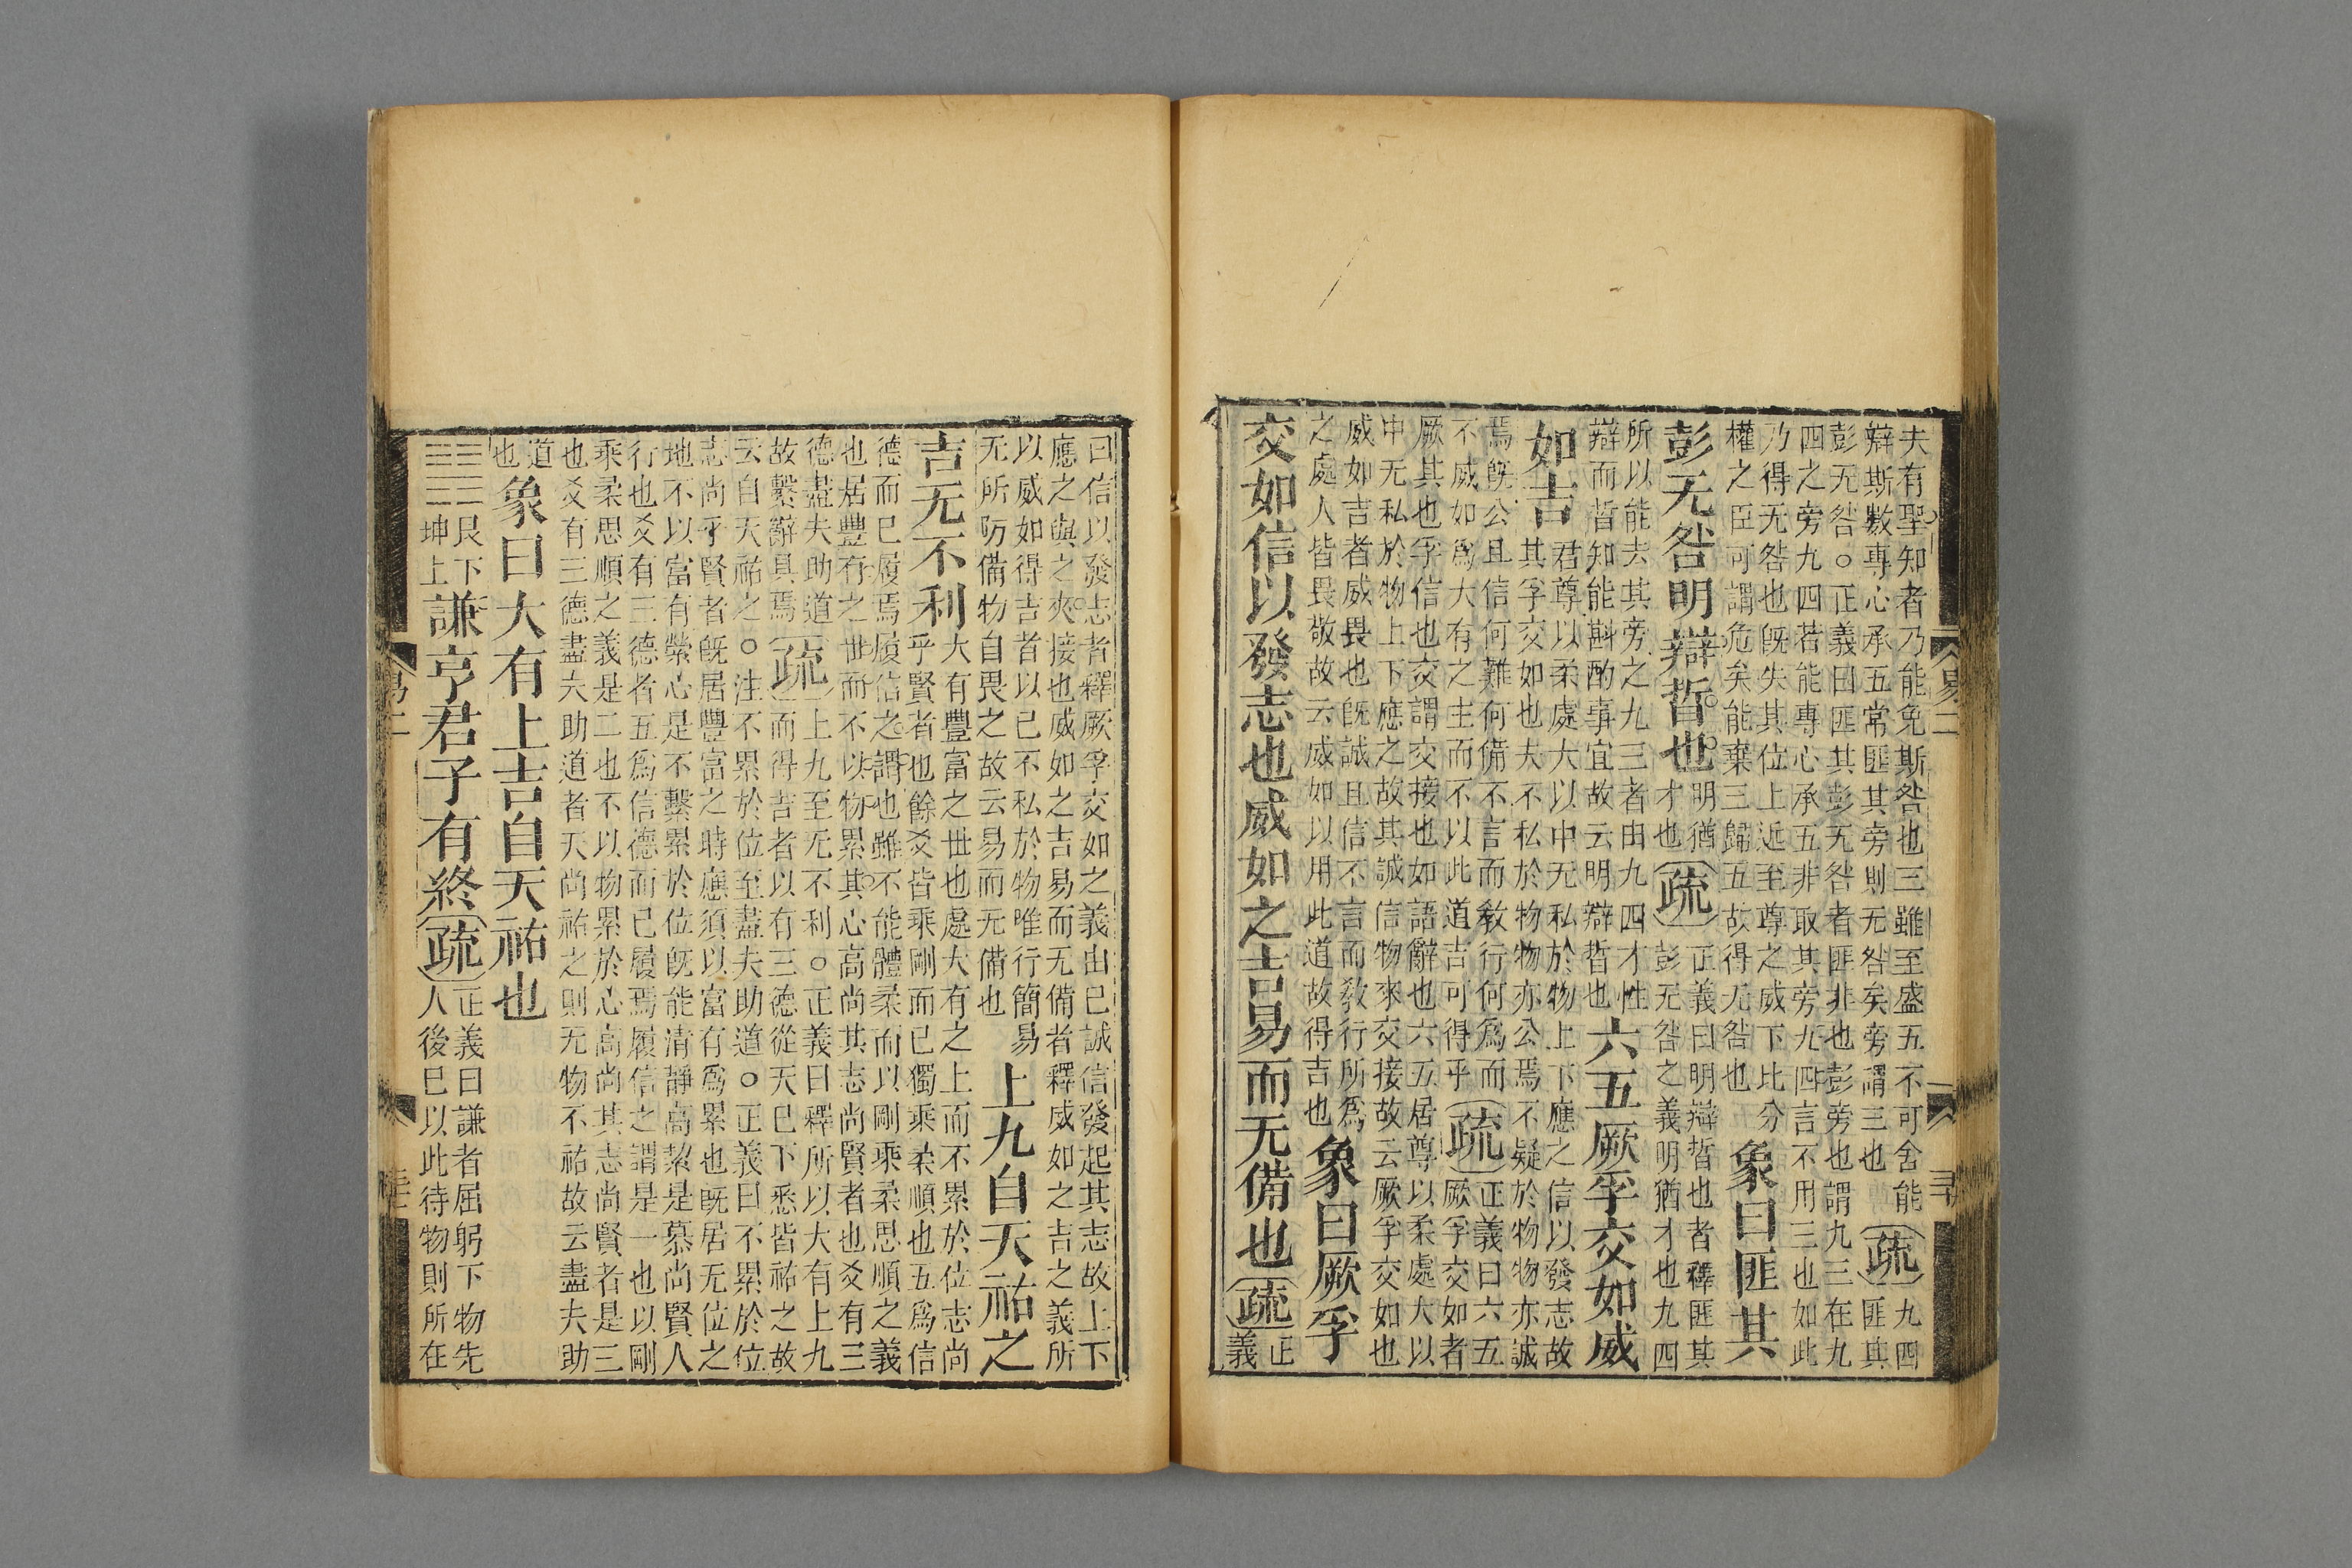 夫有聖知者乃能免斯咎也三雖至盛五不可舍能
辯斯數專心承五常匪其旁則无咎矣旁謂三也
疏
九四
匪其
彭无咎○正義曰匪其彭无咎者匪非也彭旁也謂九三在九
四之旁九四若能專心承五非取其旁九四言不用三也如此
乃得无咎也旣失其位上近至尊之威下比分
權之臣可謂危矣能棄三歸五故得无咎也
象曰匪其
彭无咎明辯晢也
明猶
才也
疏
正義曰明辯晢也者釋匪其
彭无咎之義明猶才也九四
所以能去其旁之九三者由九四才性
辯而晢知能斟酌事宜故云明辯晢也
六五厥孚交如威
如吉
君尊以柔處大以中无私於物上下應之信以發志故
其孚交如也夫不私於物物亦公焉不疑於物物亦誠
焉旣公且信何難何備不言而敎行何爲而
不威如爲大有之主而不以此道吉可得乎
疏
正義曰六五
厥孚交如者
厥其也孚信也交謂交接也如語辭也六五居尊以柔處大以
中无私於物上下應之故其誠信物來交接故云厥孚交如也
威如吉者威畏也旣誠且信不言而敎行所爲
之處人皆畏敬故云威如以用此道故得吉也
象曰厥孚
交如信以發志也威如之吉易而无備也
疏
正
義
曰信以發志者釋厥孚交如之義由已誠信發起其志故上下
應之與之交接也威如之吉易而无備者釋威如之吉之義所
以威如得吉者以已不私於物唯行簡易
无所防備物自畏之故云易而无備也
上九自天祐之
吉无不利
大有豐富之世也處大有之上而不累於位志尚
乎賢者也餘爻皆乘剛而已獨乘柔順也五爲信
德而已履焉履信之謂也雖不能體柔而以剛乘柔思順之義
也居豐有之世而不以物累其心高尚其志尚賢者也爻有三
德盡夫助道
故繫辭具焉
疏
上九至无不利○正義曰釋所以大有上九
而得吉者以有三德從天已下悉皆祐之故
云自天祐之○注不累於位至盡夫助道○正義曰不累於位
志尚乎賢者旣居豐富之時應須以富有爲累也旣居无位之
地不以富有縈心是不繫累於位旣能清靜高絜是慕尚賢人
行也爻有三德者五爲信德而已履焉履信之謂是一也以剛
乘柔思順之義是二也不以物累於心高尚其志尚賢者是三
也爻有三德盡夫助道者天尚祐之則无物不祐故云盡夫助
道
也
象曰大有上吉自天祐也
艮下
坤上
謙亨君子有終
疏
正義曰謙者屈躬下物先
人後已以此待物則所在
易二
易二